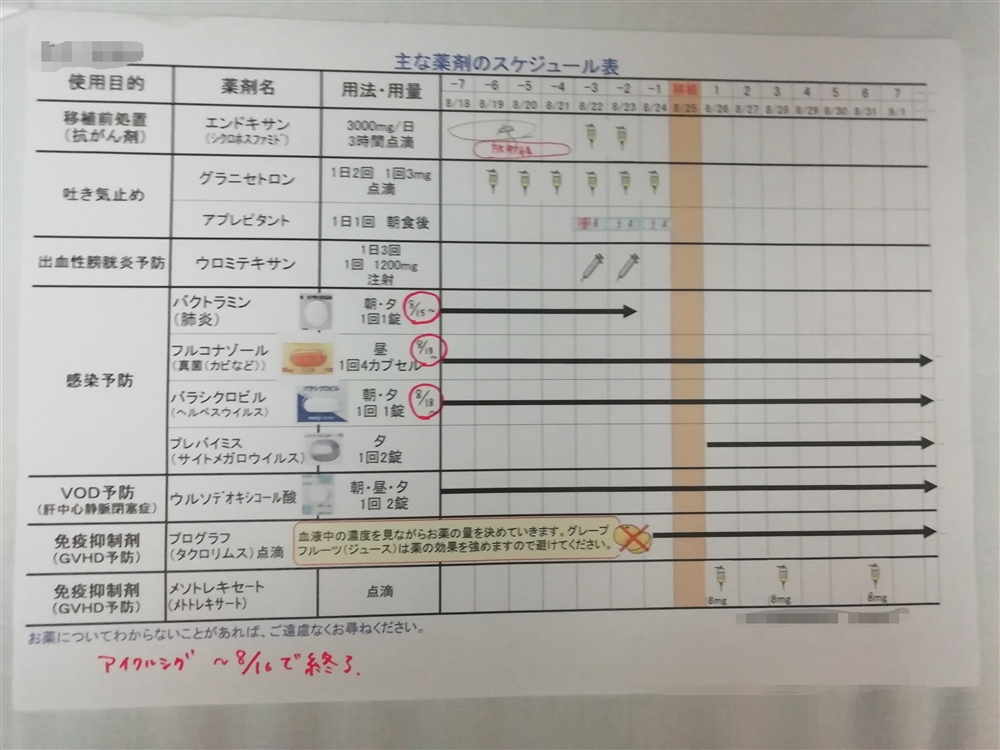 主な薬剤のスケジュール表
使用目的 薬剤名 用法・用量 -7 -6 -5 -4 -3 -2 -1 移植 1 2 3 4 5 6 7
8/18 8/19 8/20 8/21 8/22 8/23 8/24 8/25 8/26 8/27 8/28 8/29 8/30 8/31 9/1
移植前処置
(抗がん剤)
エンドキサン
(シクロホスファミド)
3000mg/日
3時間点滴
放射線
吐き気止め
グラニセトロン
1日2回 1回3mg
点滴
アプレピタント
1日1回 朝食後
出血性膀胱炎予防
ウロミテキサン
1日3回
1回 1200mg
注射
感染予防
バクトラミン
(肺炎)
朝・夕
1回1錠
8/15~
フルコナゾール
(真菌(カビなど))
昼
1回4カプセル
バラシクロビル
(ヘルペスウイルス)
バラシクロビル
朝・夕
1回 1錠
8/18
~
プレバイミス
(サイトメガロウイルス)
夕
1回2錠
VOD予防
(肝中心静脈閉塞症)
ウルソデオキシコール酸
朝・昼・夕
1回 2錠
免疫抑制剤
(GVHD予防)
プログラフ
(タクロリムス)点滴
血液中の濃度を見ながらお薬の量を決めていきます。グレープ
フルーツ(ジュース)は薬の効果を強めますので避けてください。
免疫抑制剤
(GVHD予防)
メソトレキセート
(メトトレキサート)
点滴
8mg 8mg 8mg
お薬についてわからないことがあれば、ご遠慮なくお尋ねください。
アイクルシグ ~8/16で終了.